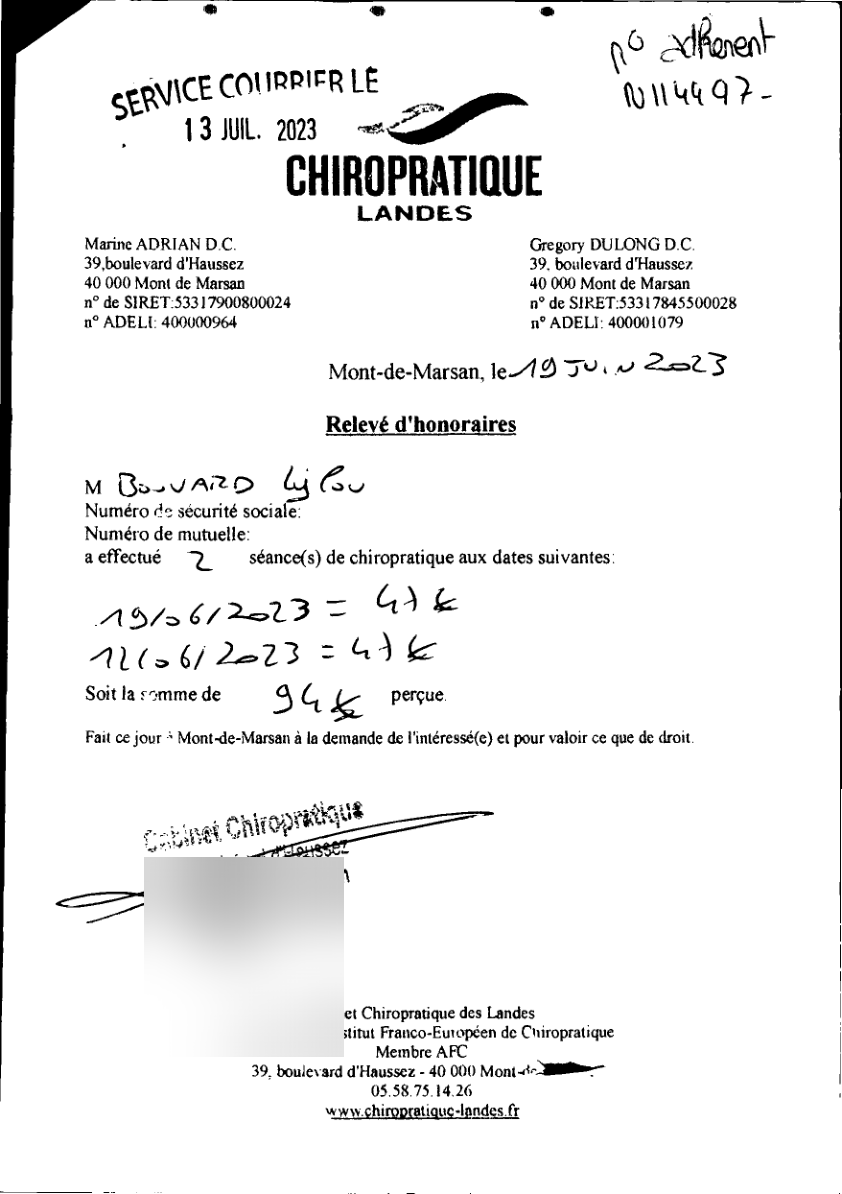 n° adherent
N114497-
SERVICE COURRIER LE
13 JUIL. 2023
CHIROPRATIQUE
LANDES
Marine ADRIAN D.C.
39,boulevard d'Haussez
40 000 Mont de Marsan
n° de SIRET:53317900800024
n° ADELI: 400000964
Gregory DULONG D.C.
39, boulevard d'Haussez
40 000 Mont de Marsan
n° de SIRET:53317845500028
n° ADELI: 400001079
Mont-de-Marsan, le 19 JUIN 2023
Relevé d'honoraires
M BOUVARD Lylou
Numéro de sécurité sociale:
Numéro de mutuelle:
a effectué 2 séance(s) de chiropratique aux dates suivantes:
19/06/2023 = 47 €
12/06/2023 = 47 €
Soit la somme de 94 € perçue.
Fait ce jour à Mont-de-Marsan à la demande de l'intéressé(e) et pour valoir ce que de droit.
Cabinet Chiropratique
d'Haussez
et Chiropratique des Landes
stitut Franco-Européen de Chiropratique
Membre AFC
39, boulevard d'Haussez - 40 000 Mont-de-
05.58.75.14.26
www.chiropratique-landes.fr